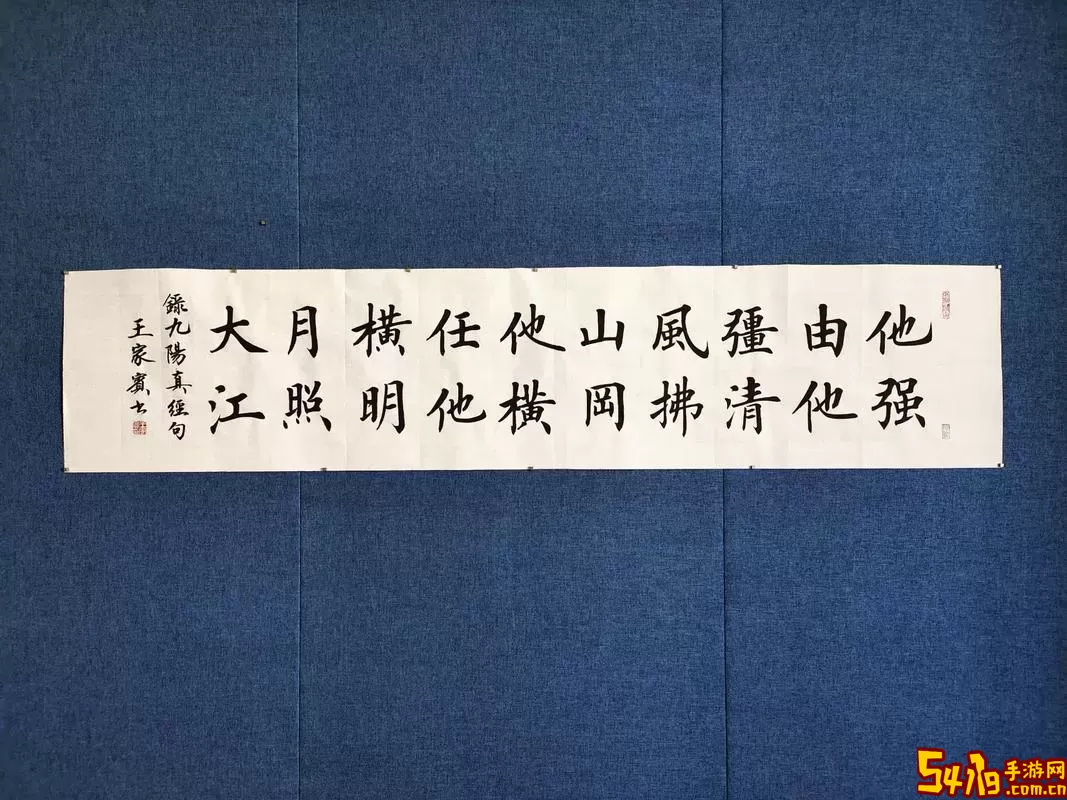 他强
由他
彊清
風拂
山岡
他横
任他
横明
月照
大江
錄九陽真經句
王家賓书
手游网
.com.cn